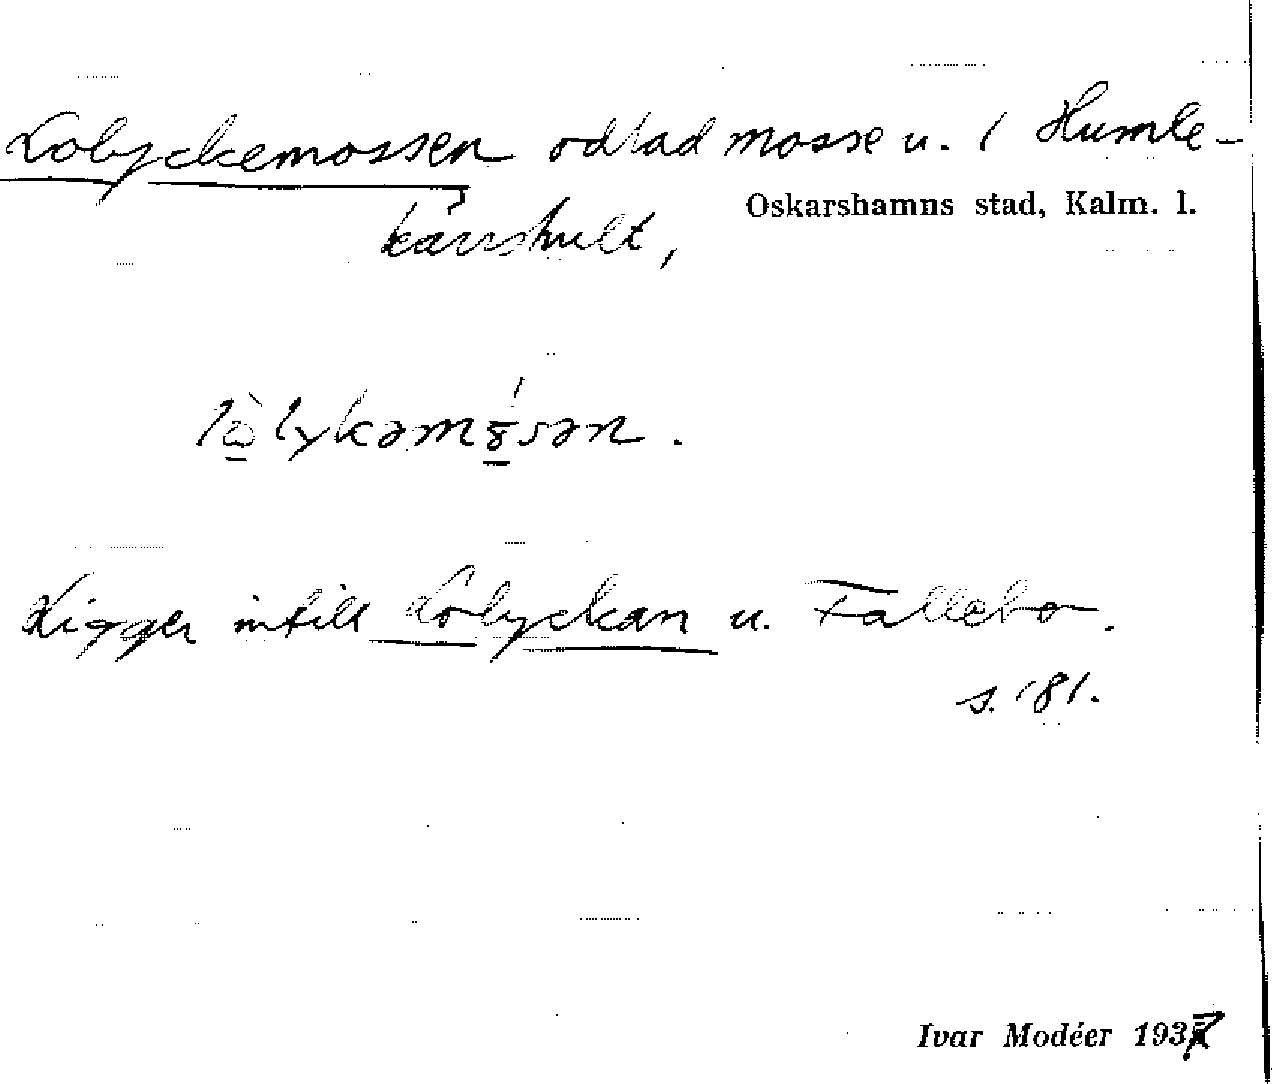 Lobyckemossen odlad mosse u. 1 Humle-
Oskarshamns stad, Kalm. l.
kärrshult,
Ligger intill Lobyckan u. Fallebo.
s. 181.
Ivar Modéer 1937